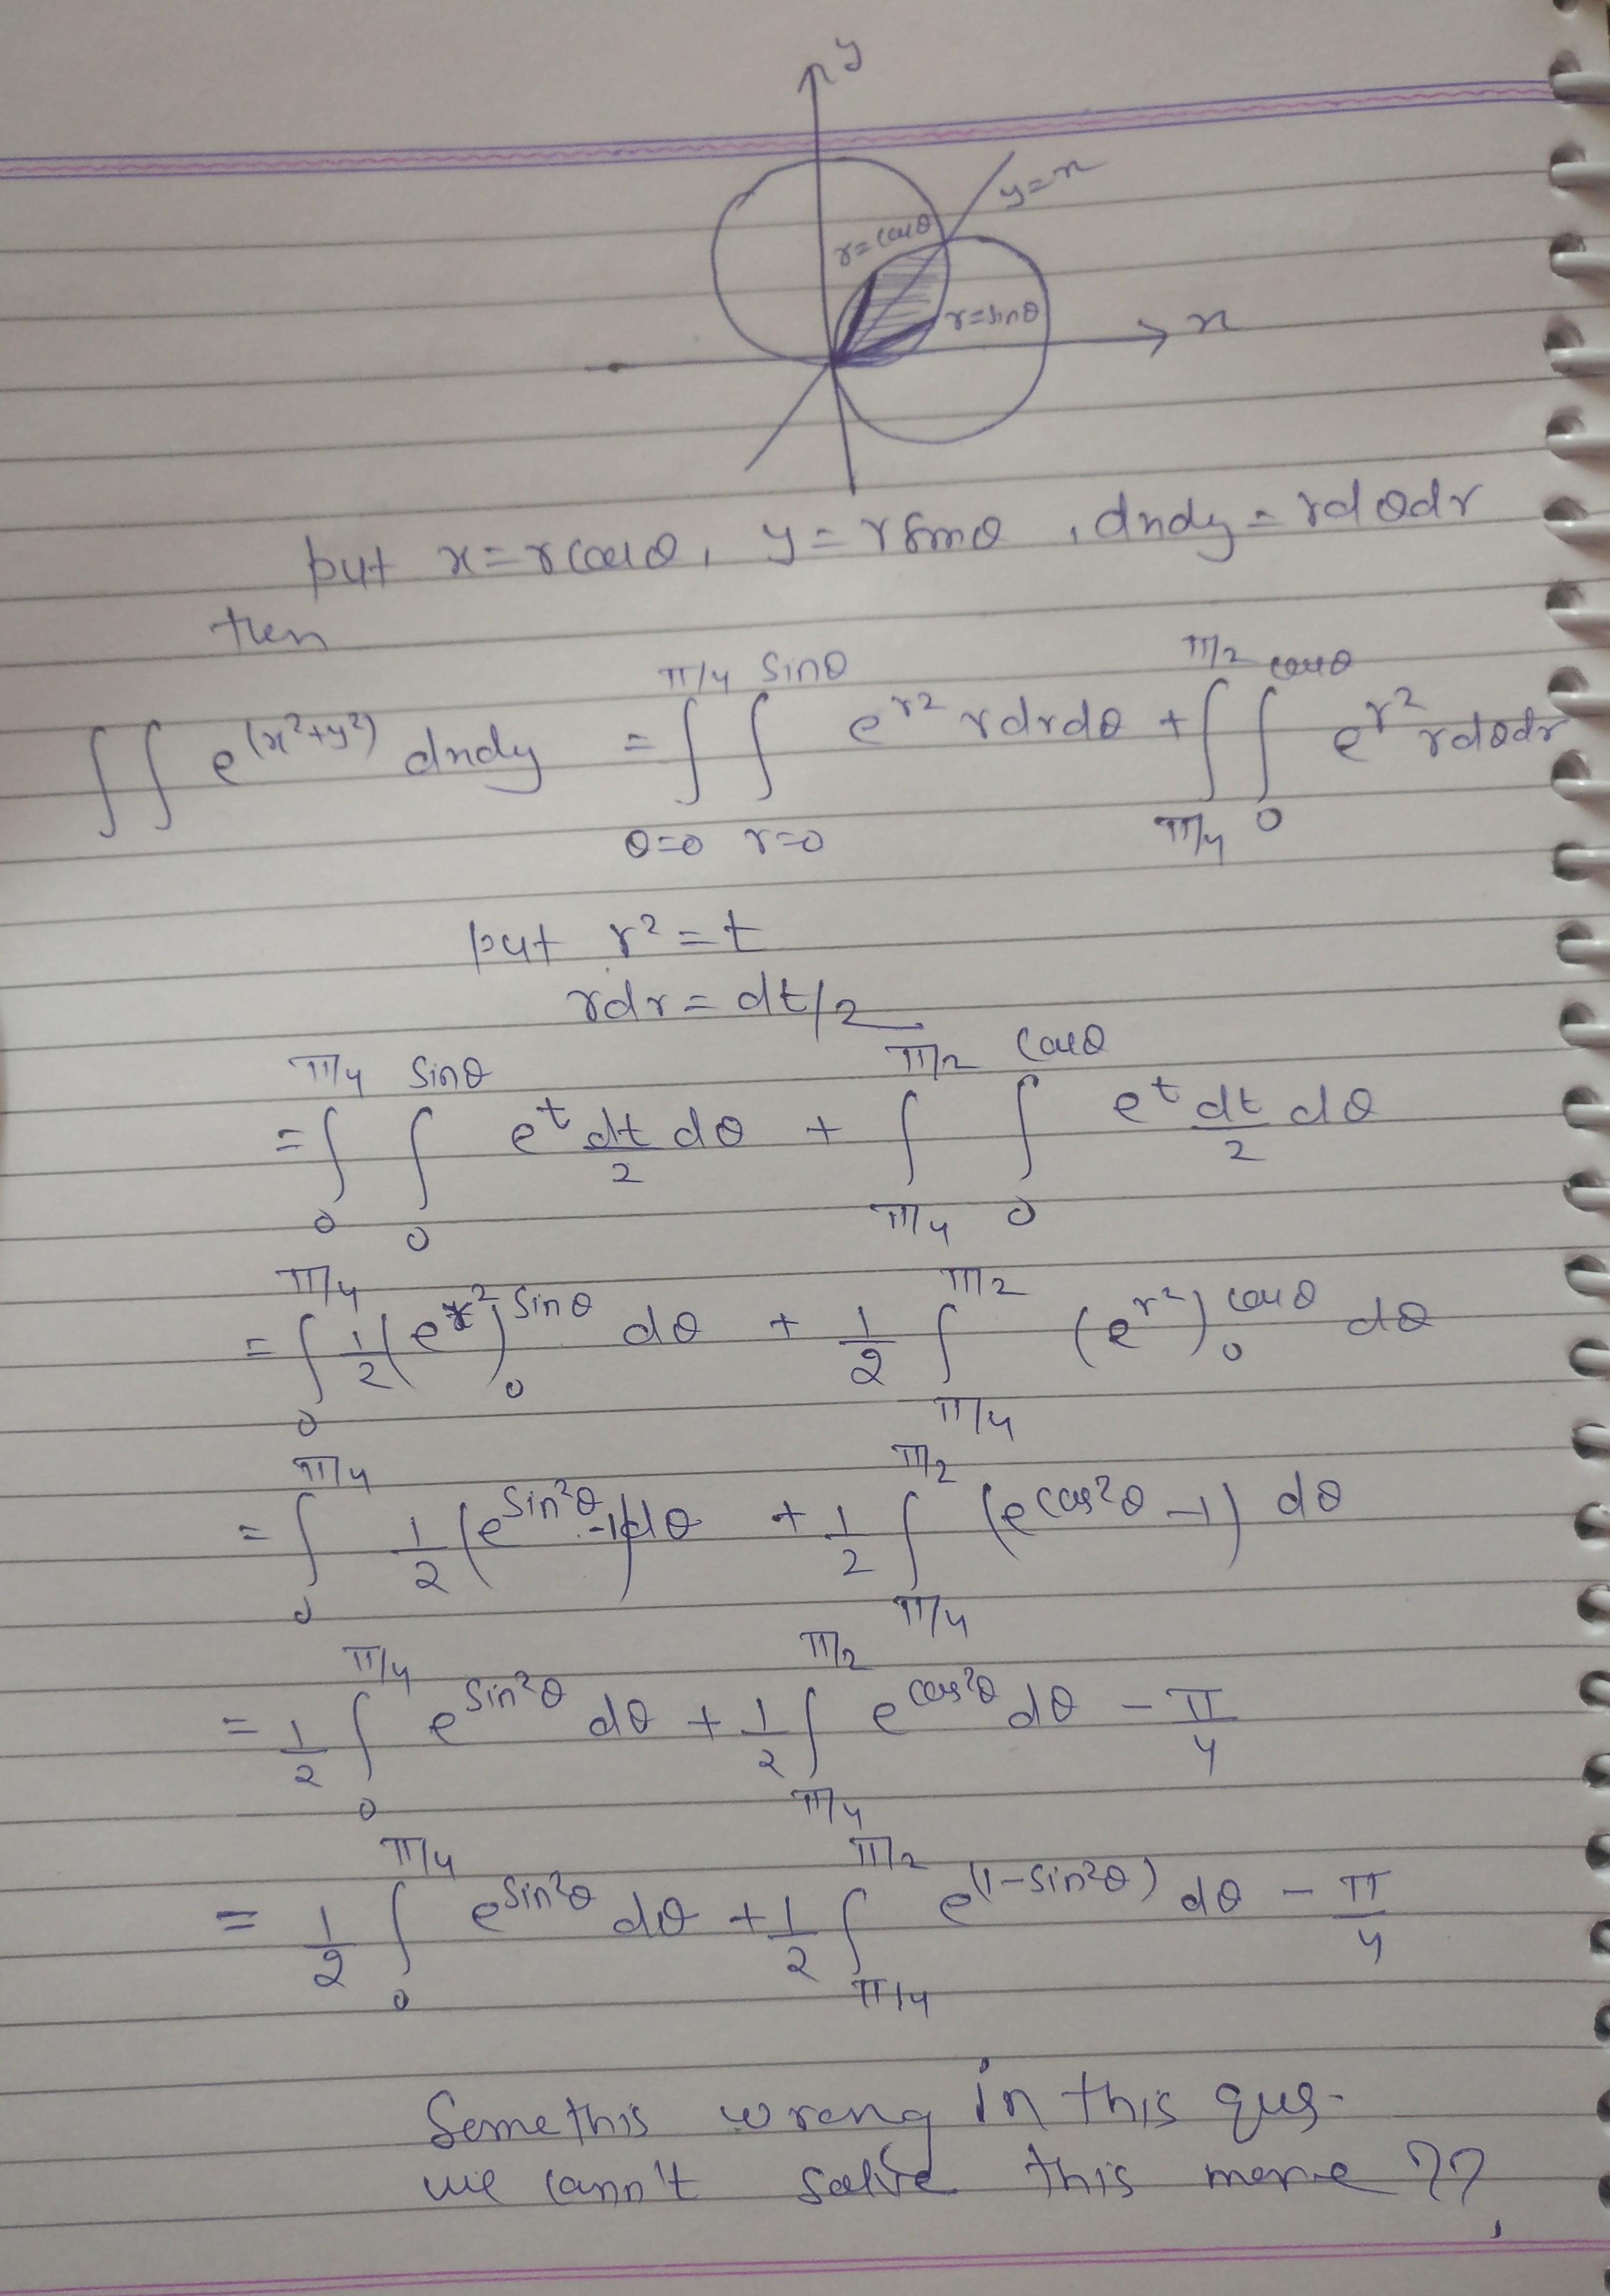 y
y=x
r=cosθ
r=sinθ
x
put x=rcosθ, y=rsinθ, dxdy=rdθdr
then
∫∫ e^(x²+y²) dxdy = ∫_{θ=0}^{π/4} ∫_{r=0}^{sinθ} e^{r²} rdrdθ + ∫_{π/4}^{π/2} ∫_0^{cosθ} e^{r²} rdθdr
put r²=t
rdr=dt/2
= ∫_0^{π/4} ∫_0^{sinθ} e^t dt/2 dθ + ∫_{π/4}^{π/2} ∫_0^{cosθ} e^t dt/2 dθ
= ∫_0^{π/4} 1/2 (e^{r²})_0^{sinθ} dθ + 1/2 ∫_{π/4}^{π/2} (e^{r²})_0^{cosθ} dθ
= ∫_0^{π/4} 1/2 (e^{sin²θ} -1)dθ + 1/2 ∫_{π/4}^{π/2} (e^{cos²θ} -1) dθ
= 1/2 ∫_0^{π/4} e^{sin²θ} dθ + 1/2 ∫_{π/4}^{π/2} e^{cos²θ} dθ - π/4
= 1/2 ∫_0^{π/4} e^{sin²θ} dθ + 1/2 ∫_{π/4}^{π/2} e^{(1-sin²θ)} dθ - π/4
Somethis wrong in this ques.
we cann't solve this more ??,